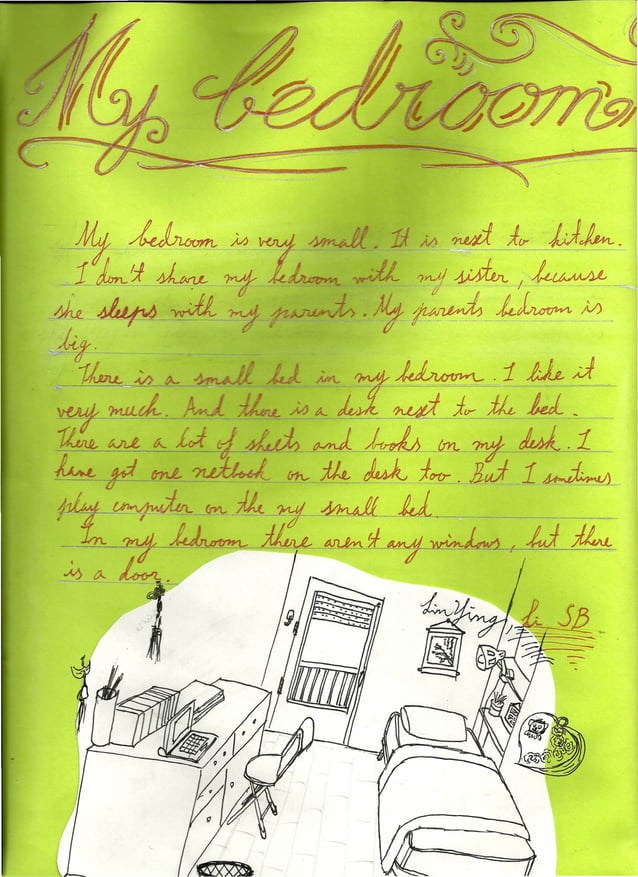 My bedroom
My bedroom is very small. It is next to kitchen.
I don't share my bedroom with my sister, because
she sleeps with my parents. My parents bedroom is
big.
There is a small bed in my bedroom. I like it
very much. And there is a desk next to the bed.
There are a lot of sheets and books on my desk. I
have got one netbook on the desk too. But I sometimes
play computer on the my small bed.
In my bedroom there aren't any windows, but there
is a door.
LinYing, Li 5B